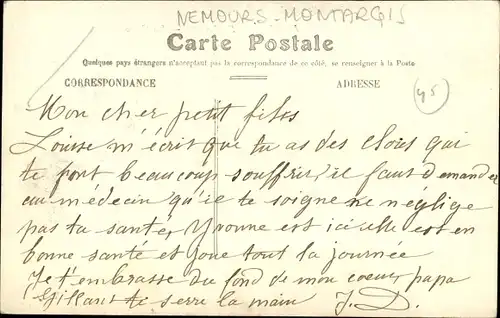 NEMOURS-MONTARGIS
Carte Postale
Quelques pays étrangers n'acceptant pas la correspondance de ce côté, se renseigner à la Poste
CORRESPONDANCE
ADRESSE
45
Mon cher petit fils
Louise m'écrit que tu as des clous qui
te font beaucoup souffrir, il faut demander
au médecin qu'il te soigne ne néglige
pas ta santé, Yvonne est ici elle est en
bonne santé et joue tout la journée
Je t'embrasse du fond de mon coeur, papa
te serre la main J. D.